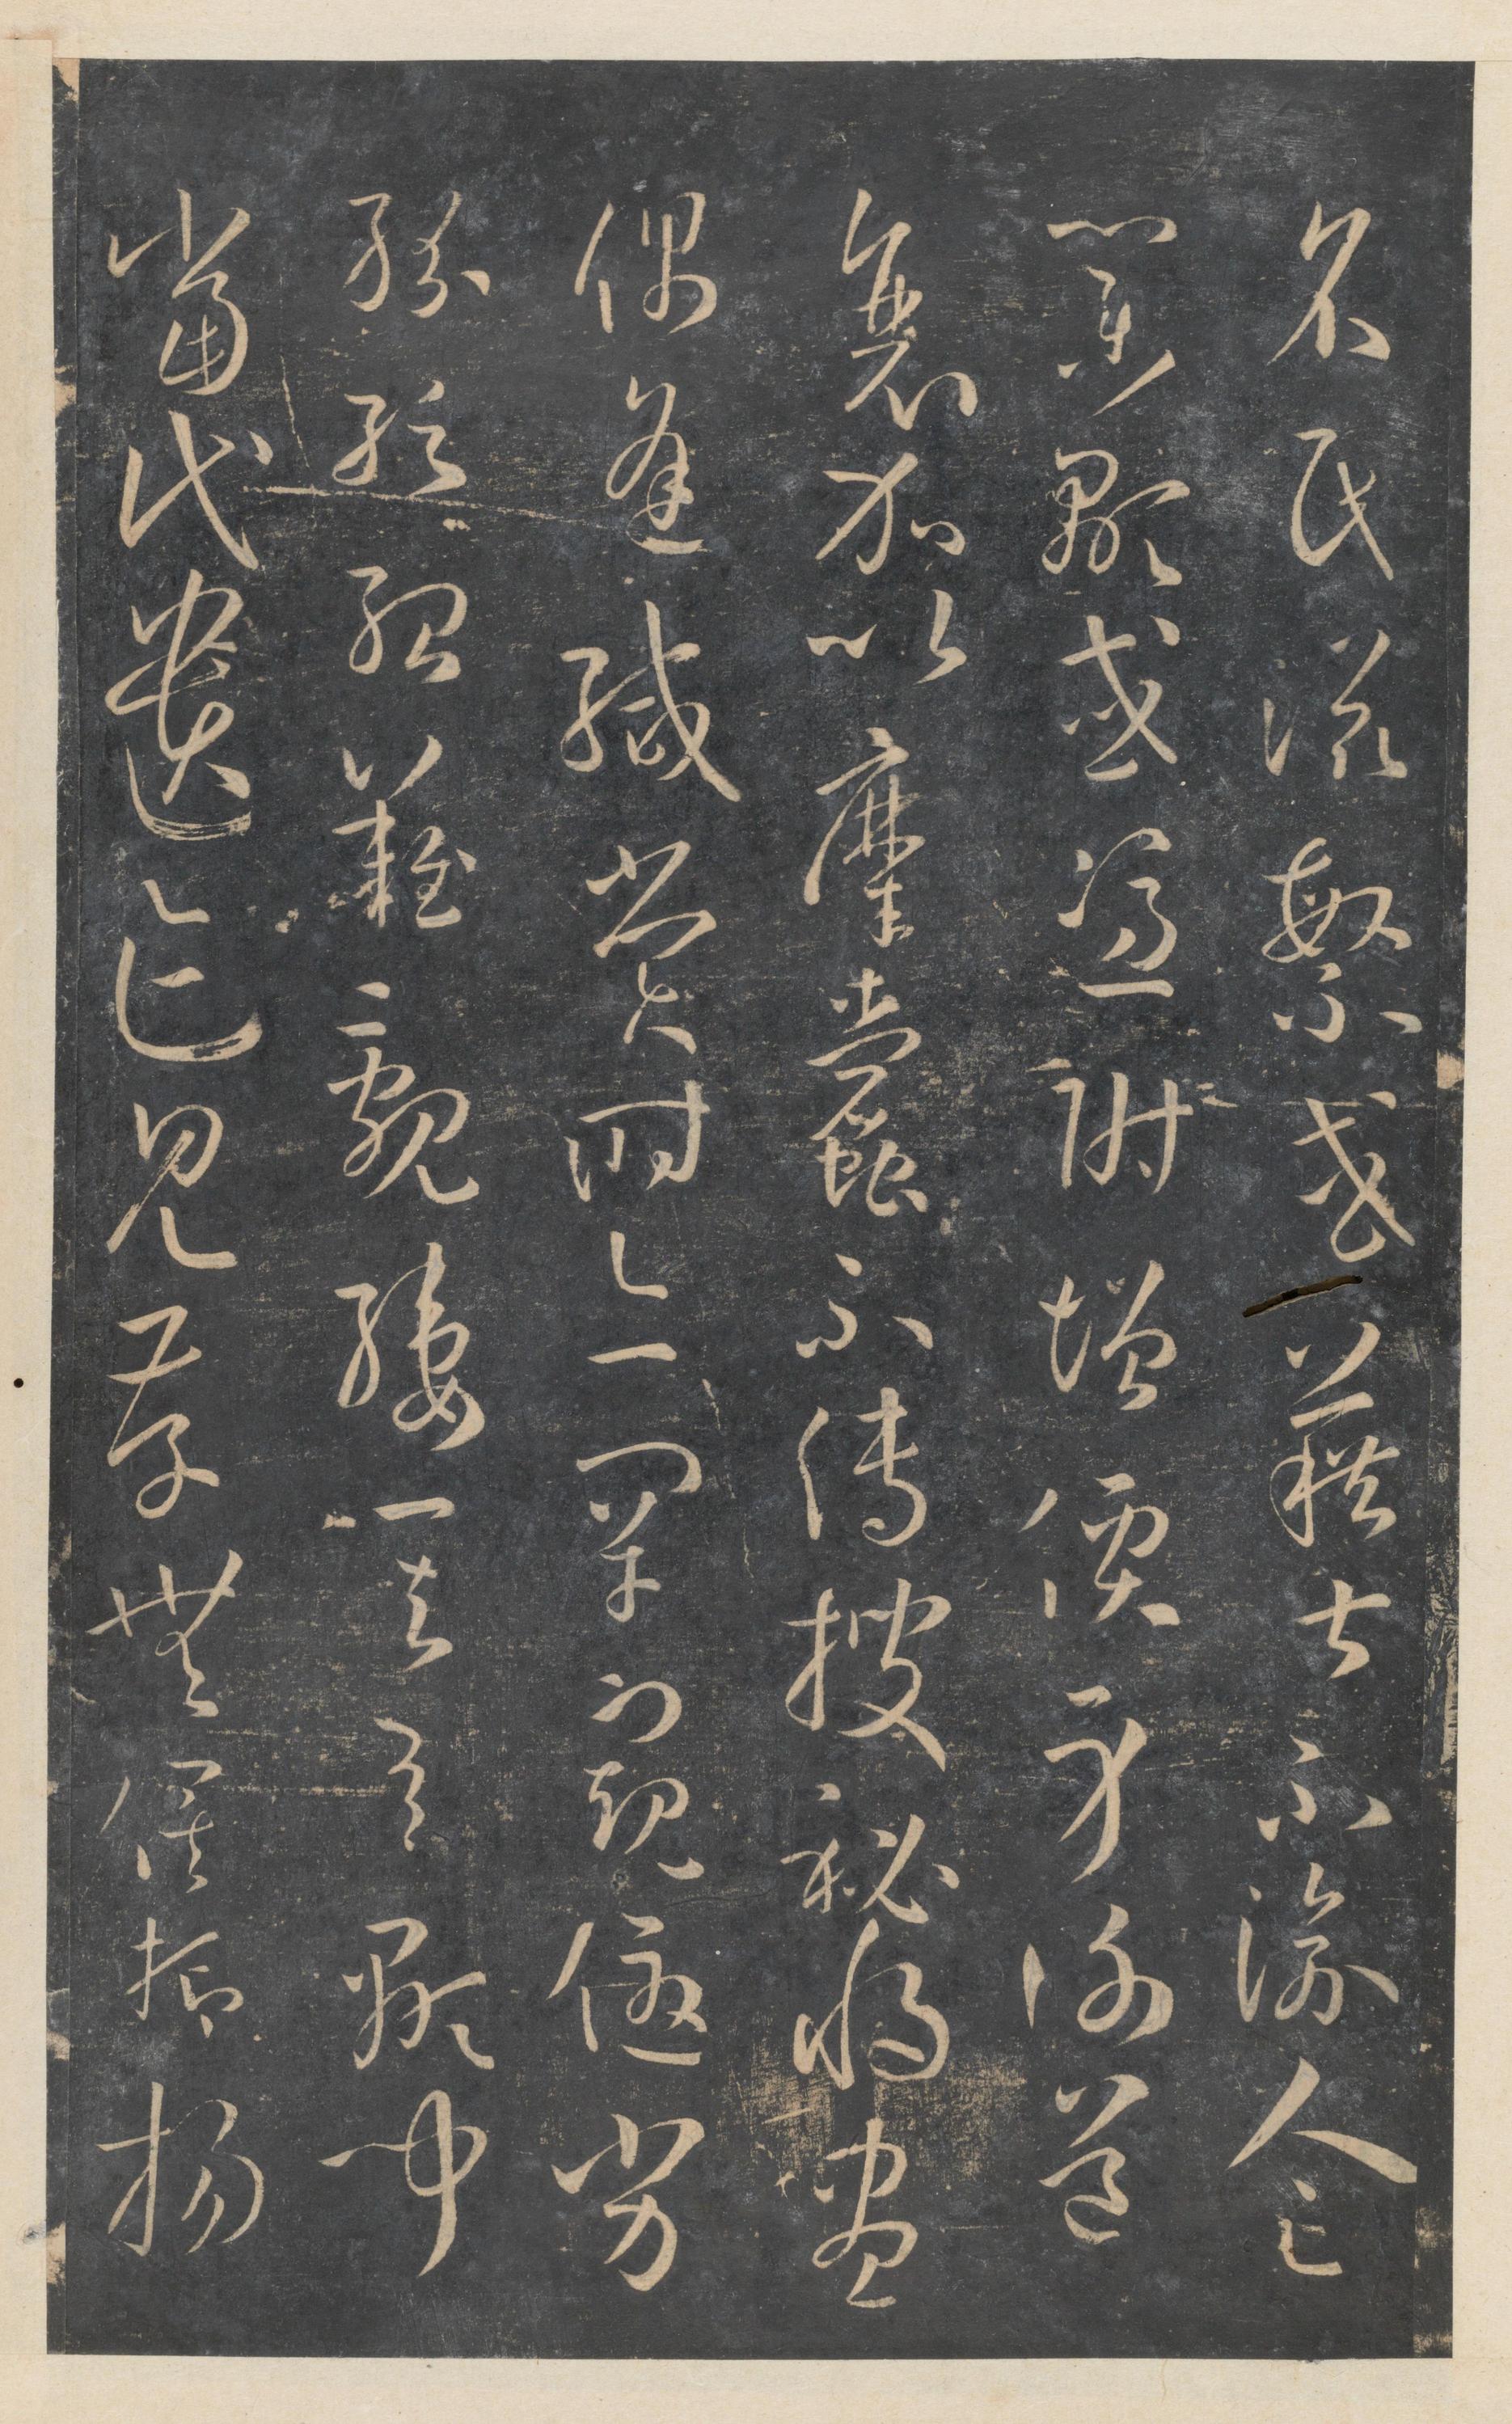 名氏滋繁或藉甚不渝人亡
業顯或憑附增價身謝道
衰加以糜蠹不傳搜秘將盡
偶逢緘賞時亦罕窺優劣
紛紜殆難覼縷其有顯聞
當代遺跡見存無俟抑揚